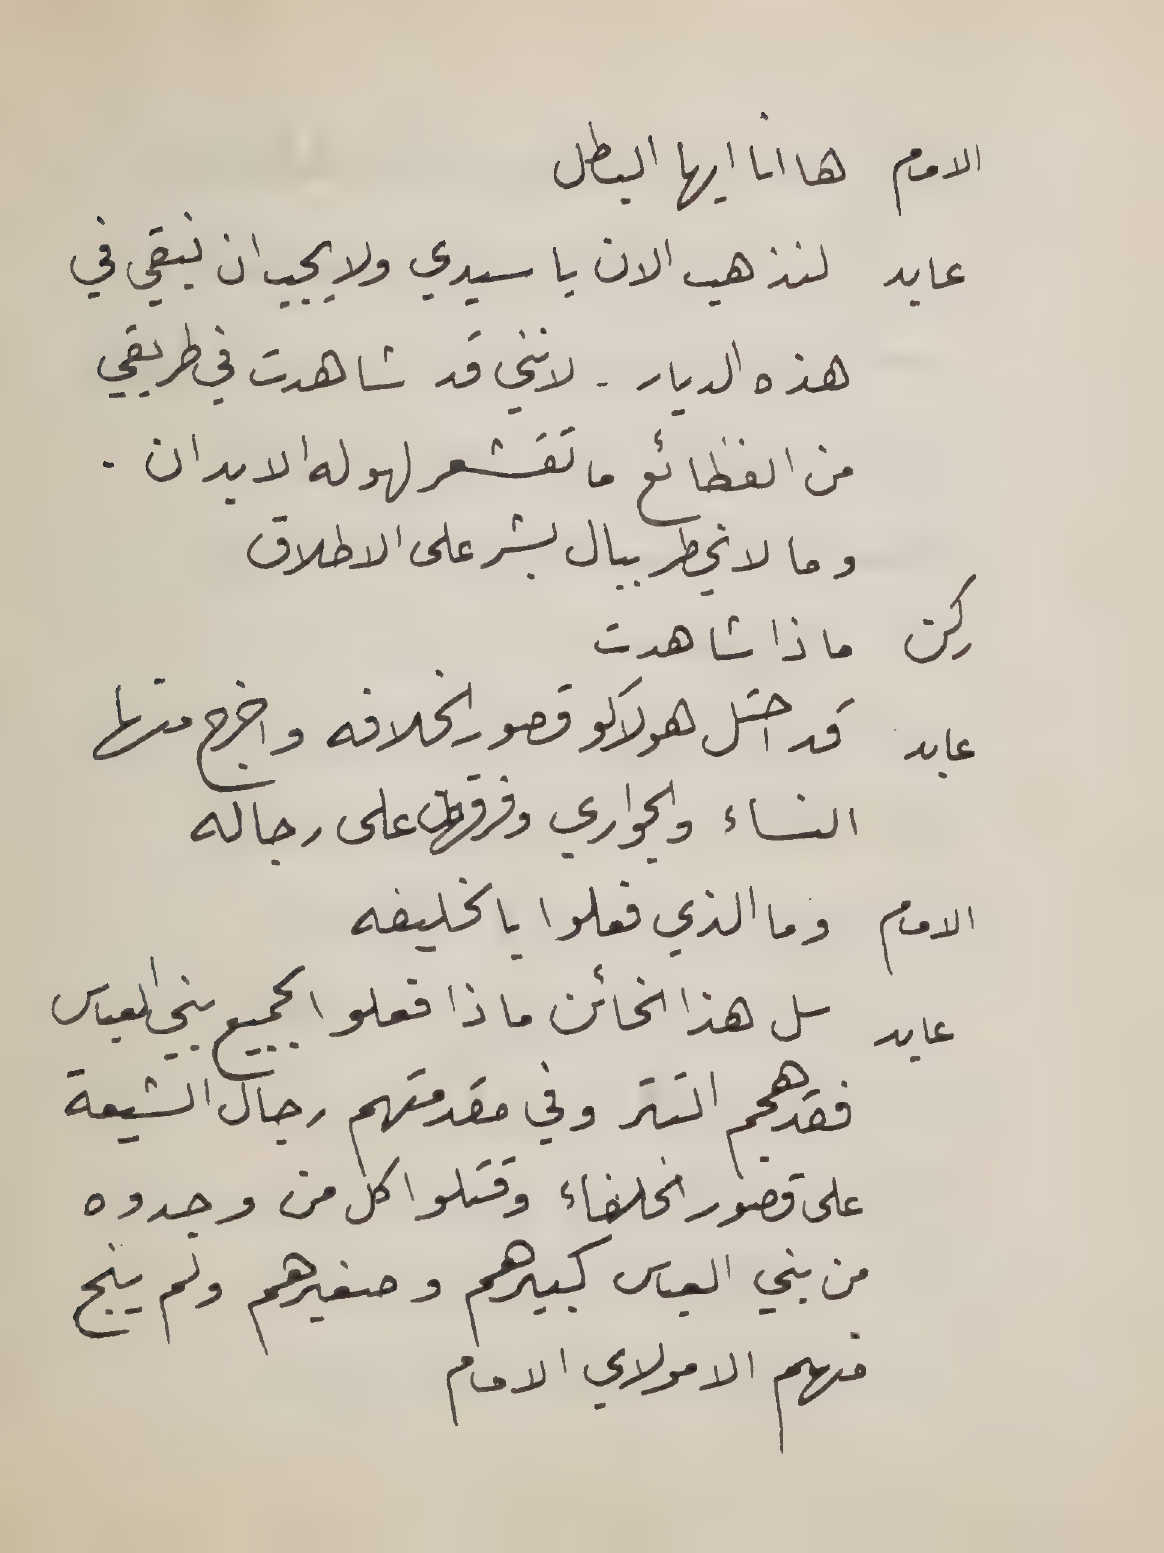 الامام هاانا ايها البطل
عابد لنذهب الان يا سيدي ولايجب ان نبقي في
هذه الديار - لانني قد شاهدت في طريقي
من الفظائع ما تقشعر لهوله الابدان .
وما لا يخطر ببال بشر على الاطلاق
ركن ماذا شاهدت
عابد قد احتل هولاكو قصور الخلافه واخرج منها
النساء والجواري وفرقهن على رجاله
الامام وما الذي فعلوا بالخليفه
عابد سل هذا الخائن ماذا فعلوا الجميع بني العباس
فقد هجم التتر وفي مقدمتهم رجال الشيعة
على قصور الخلفاء وقتلوا كل من وجدوه
من بني العباس كبيرهم وصغيرهم ولم ينج
منهم الا مولاي الامام